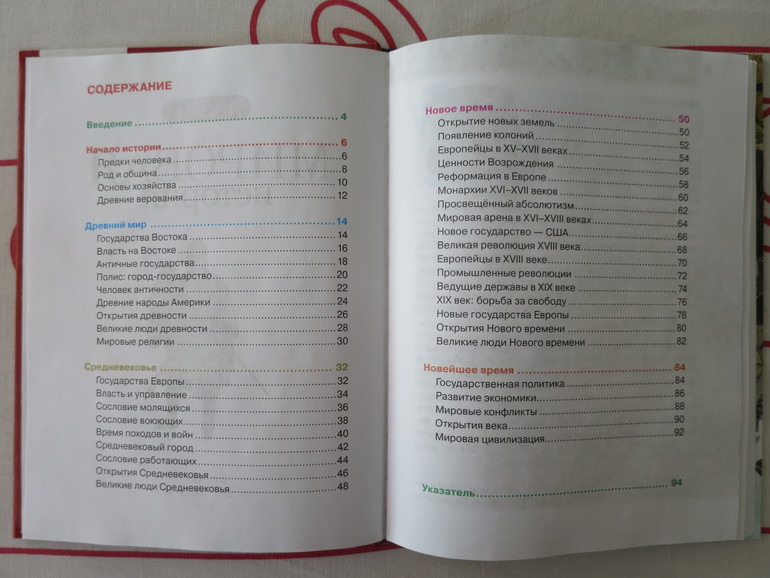 СОДЕРЖАНИЕ
Введение 4
Начало истории 6
Предки человека 6
Род и община 8
Основы хозяйства 10
Древние верования 12
Древний мир 14
Государства Востока 14
Власть на Востоке 16
Античные государства 18
Полис: город-государство 20
Человек античности 22
Древние народы Америки 24
Открытия древности 26
Великие люди древности 28
Мировые религии 30
Средневековье 32
Государства Европы 32
Власть и управление 34
Сословие молящихся 36
Сословие воюющих 38
Время походов и войн 40
Средневековый город 42
Сословие работающих 44
Открытия Средневековья 46
Великие люди Средневековья 48
Новое время 50
Открытие новых земель 50
Появление колоний 52
Европейцы в XV–XVII веках 54
Ценности Возрождения 56
Реформация в Европе 58
Монархии XVI–XVII веков 60
Просвещённый абсолютизм 62
Мировая арена в XVI–XVIII веках 64
Новое государство — США 66
Великая революция XVIII века 68
Европейцы в XVIII веке 70
Промышленные революции 72
Ведущие державы в XIX веке 74
XIX век: борьба за свободу 76
Новые государства Европы 78
Открытия Нового времени 80
Великие люди Нового времени 82
Новейшее время 84
Государственная политика 84
Развитие экономики 86
Мировые конфликты 88
Открытия века 90
Мировая цивилизация 92
Указатель 94